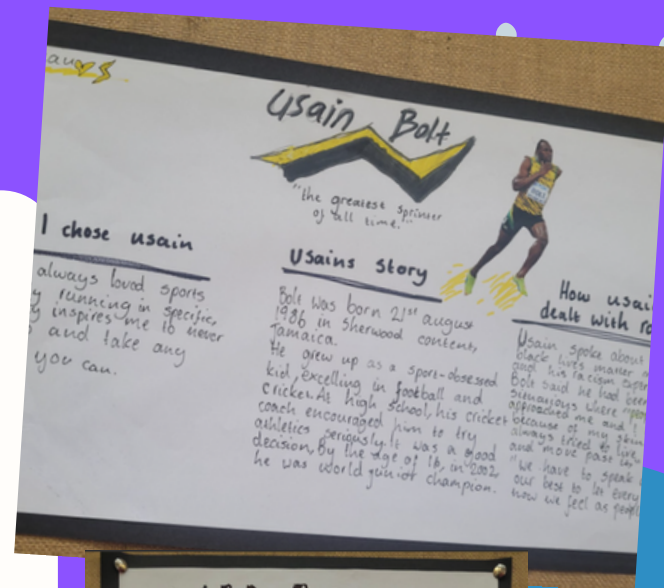 Usain Bolt
"the greatest sprinter
of all time."
I chose usain
always loved sports
running in specific,
inspires me to never
and take any
you can.
Usains story
Bolt was born 21st august
1986 in Sherwood content,
Jamaica.
He grew up as a sport-obsessed
kid, excelling in football and
cricket. At high school, his cricket
coach encouraged him to try
athletics seriously. It was a good
decision, By the age of 16, in 2002
he was world junior champion.
How usai
dealt with ra
Usain spoke about
black lives matter
and his racism exper
Bolt said he had been
situations where
approached me and I
because of my skin
always tried to live
and move past
"we have to speak
our best to let every
how we feel as people
BOLT